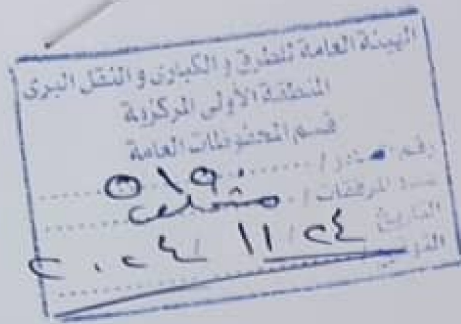 الهيئة العامة للطرق و الكبارى و النقل البرى
المنطقة الأولى المركزية
قسم المحفوظات العامة
رقم صادر / ٥١٩٠
عدد المرفقات /
التاريخ ٢٤ / ١١ / ٢٠٢٤